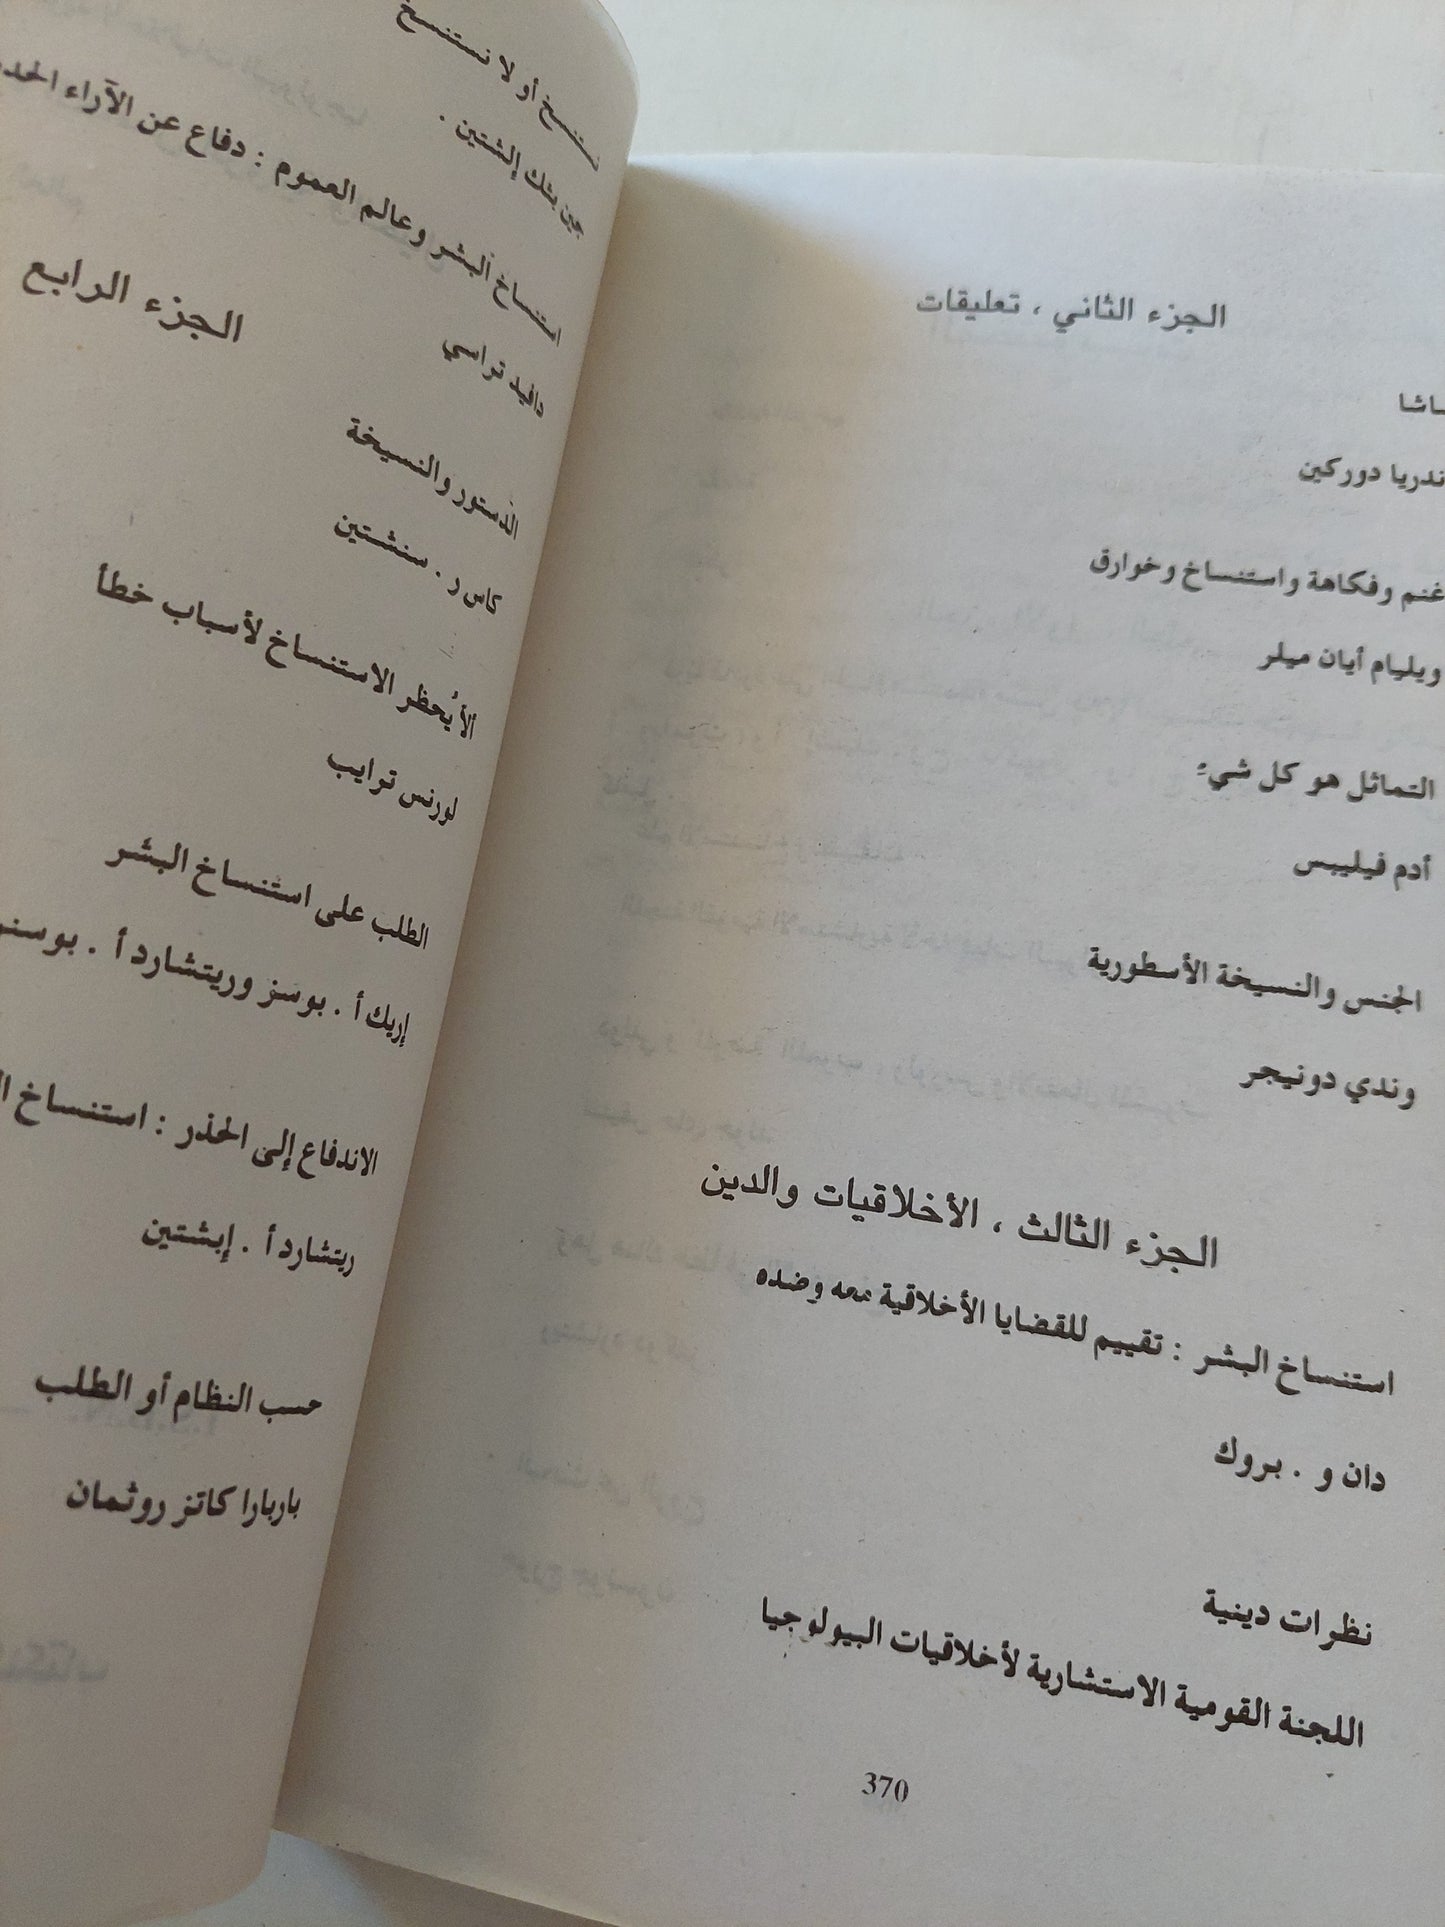 الجزء الثاني ، تعليقات
ساشا
ندريا دوركين
غنم وفكاهة واستنساخ وخوارق
ويليام أيان ميلر
التماثل هو كل شيء
أدم فيليبس
الجنس والنسيخة الأسطورية
وندي دونيجر
الجزء الثالث ، الأخلاقيات والدين
استنساخ البشر : تقييم للقضايا الأخلاقية معه وضده
دان و . بروك
نظرات دينية
اللجنة القومية الاستشارية لأخلاقيات البيولوجيا
370
نستنسخ أو لا نستنسخ
جين بثك إلشتين .
استنساخ البشر وعالم العموم : دفاع عن الآراء
دافيد تراسي
الجزء الرابع
الدستور والنسيخة
كاس ر . سنشتين
ألا يُحظر الاستنساخ لأسباب خطأ
لورنس ترايب
الطلب على استنساخ البشر
إريك أ . بوسنر وريتشارد أ . بوسنر
الاندفاع إلى الحذر : استنساخ
ريتشارد أ . إبشتين
حسب النظام أو الطلب
باربارا كاتز روثمان